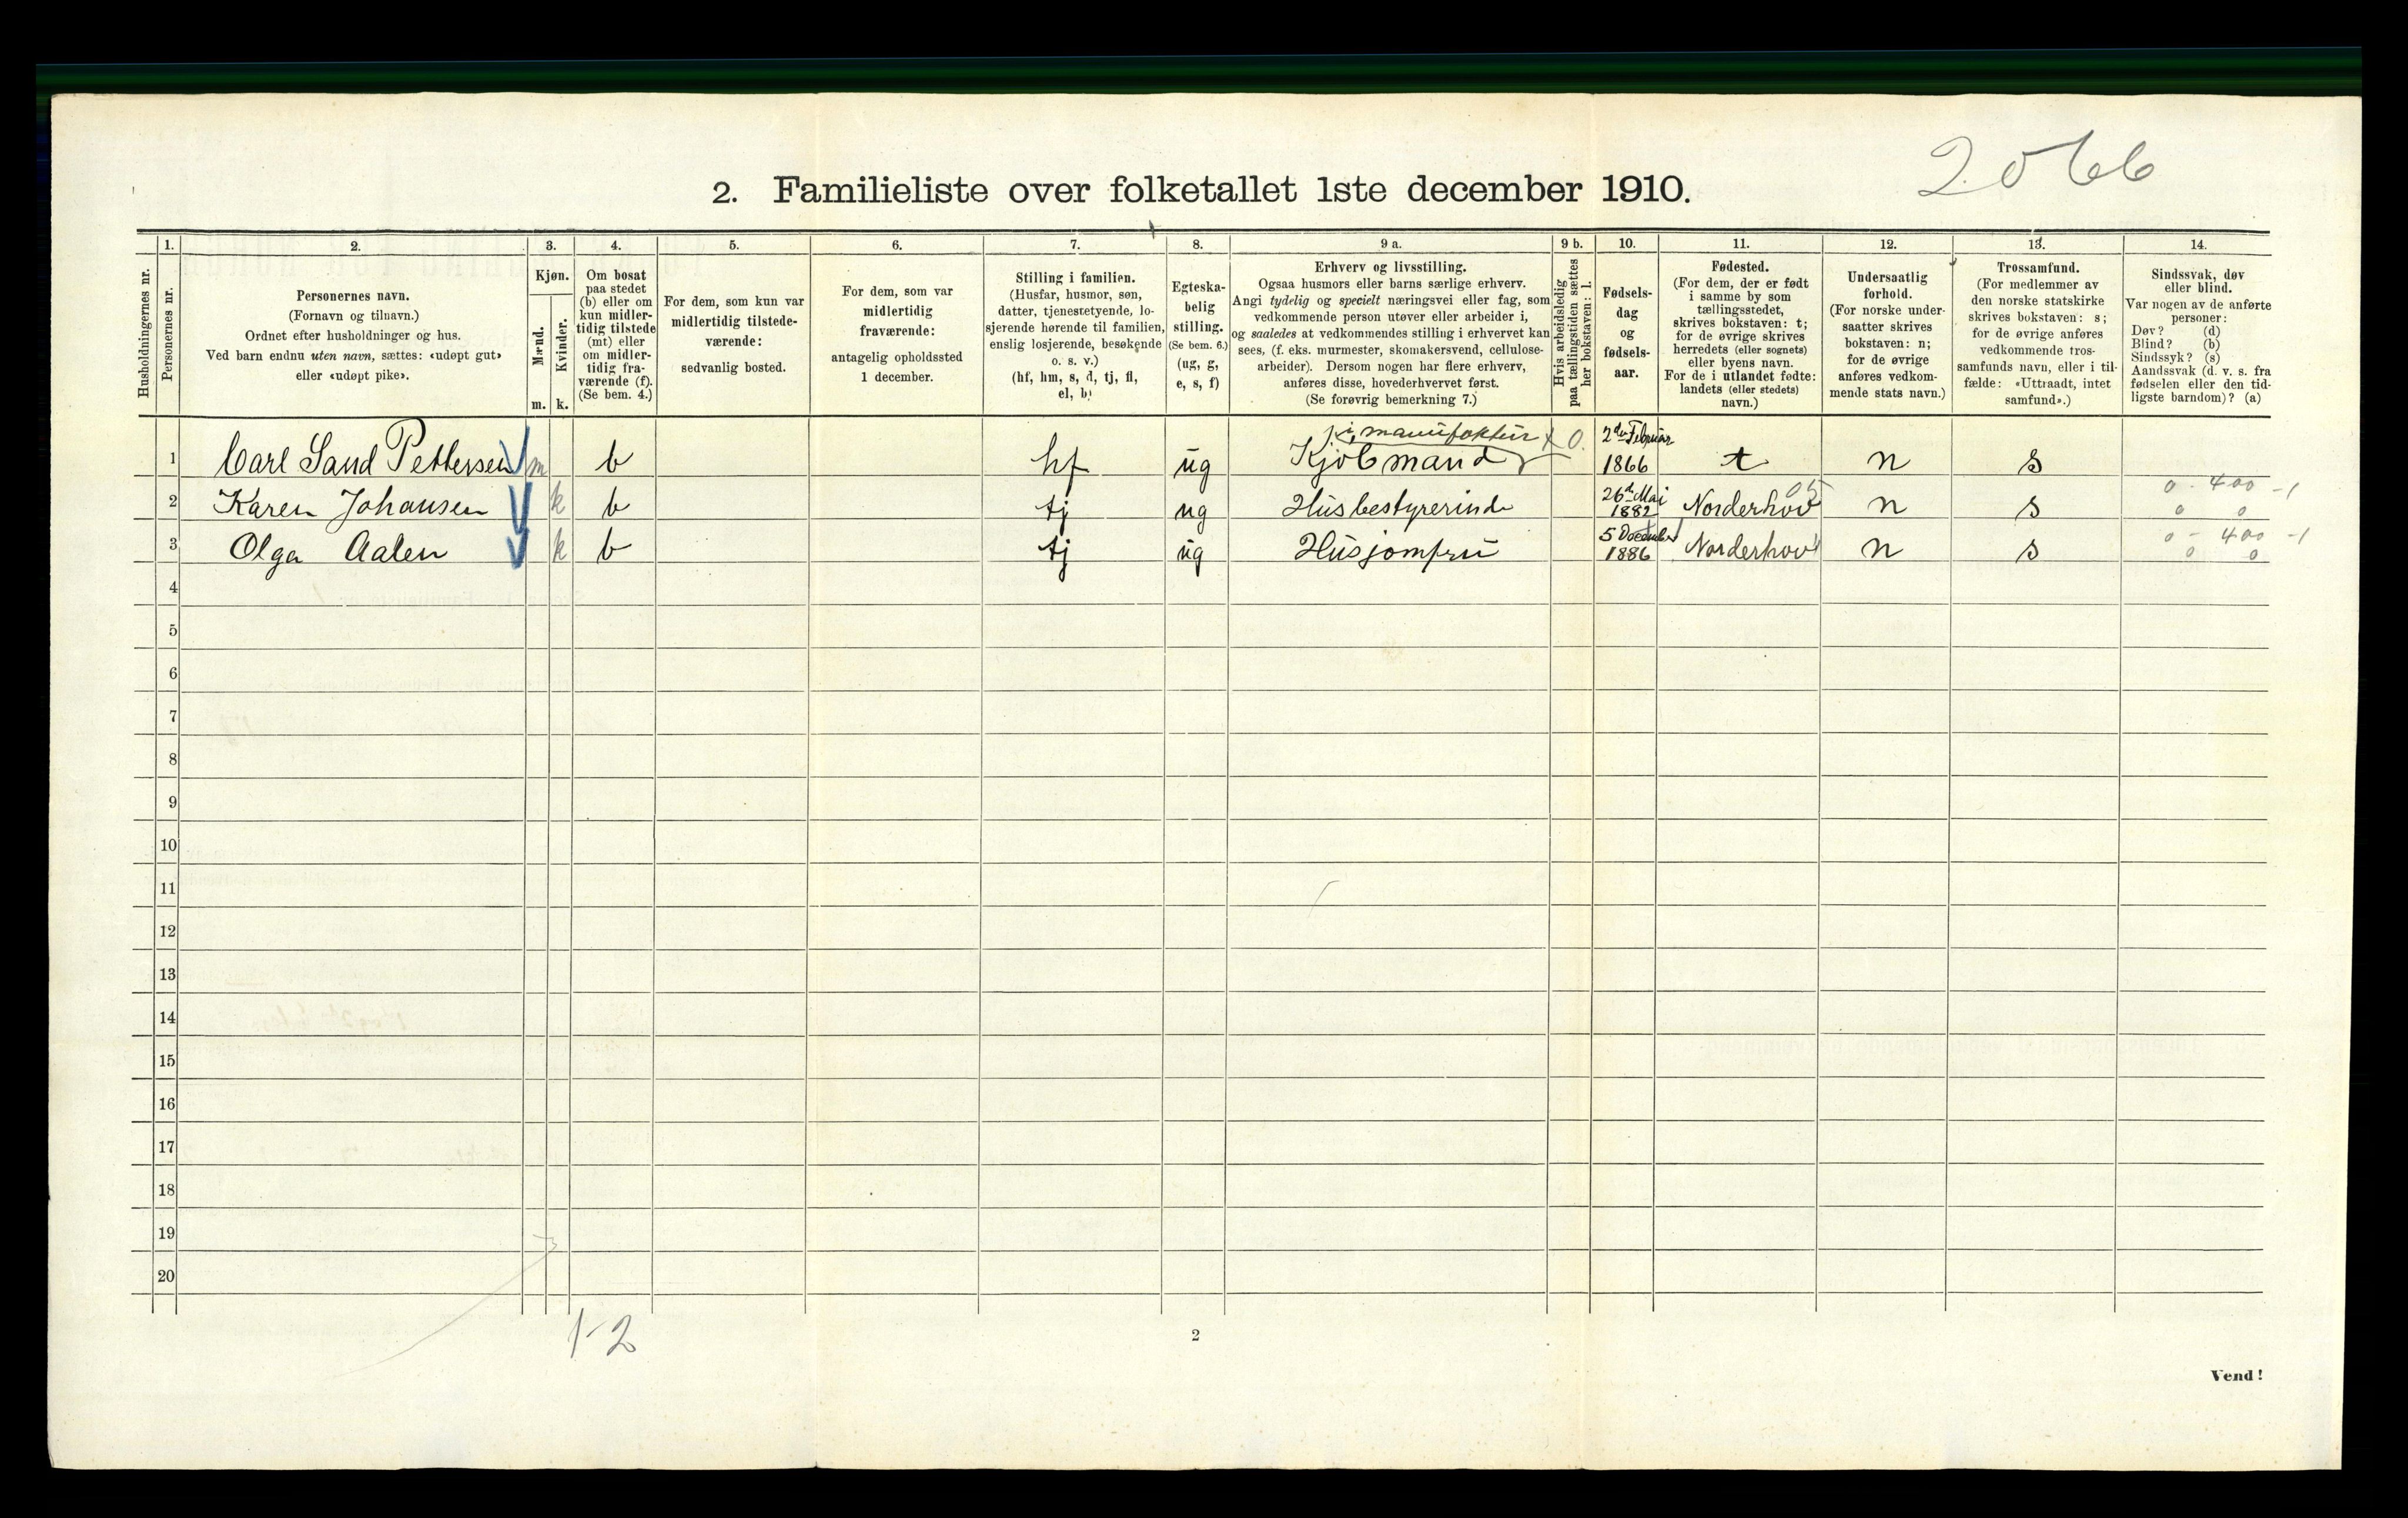 2066
2. Familieliste over folketallet 1ste december 1910.
Husholdningernes nr.
1.
Personernes nr.
2.
Personernes navn.
(Fornavn og tilnavn.)
Ordnet efter husholdninger og hus.
Ved barn endnu uten navn, sættes: «udøpt gut»
eller «udøpt pike».
3.
Kjøn.
Mænd.
Kvinder.
m. k.
4.
Om bosat
paa stedet
(b) eller om
kun midler-
tidig tilstede
(mt) eller
om midler-
tidig fra-
værende (f).
(Se bem. 4.)
5.
For dem, som kun var
midlertidig tilstede-
værende:
sedvanlig bosted.
6.
For dem, som var
midlertidig
fraværende:
antagelig opholdssted
1 december.
7.
Stilling i familien.
(Husfar, husmor, søn,
datter, tjenestetyende, lo-
sjerende hørende til familien,
enslig losjerende, besøkende
o. s. v.)
(hf, hm, s, d, tj, fl,
el, b)
8.
Egteska-
belig
stilling.
(Se bem. 6.)
(ug, g,
e, s, f)
9 a.
Erhverv og livsstilling.
Ogsaa husmors eller barns særlige erhverv.
Angi tydelig og specielt næringsvei eller fag, som
vedkommende person utøver eller arbeider i,
og saaledes at vedkommendes stilling i erhvervet kan
sees, (f. eks. murmester, skomakersvend, cellulose-
arbeider). Dersom nogen har flere erhverv,
anføres disse, hovederhvervet først.
(Se forøvrig bemerkning 7.)
9 b.
Hvis arbeidsledig
paa tællingstiden sættes
her bokstaven: l.
10.
Fødsels-
dag
og
fødsels-
aar.
11.
Fødested.
(For dem, der er født
i samme by som
tællingsstedet,
skrives bokstaven: t;
for de øvrige skrives
herredets (eller sognets)
eller byens navn.
For de i utlandet fødte:
landets (eller stedets)
navn.)
12.
Undersaatlig
forhold.
(For norske under-
saatter skrives
bokstaven: n;
for de øvrige
anføres vedkom-
mende stats navn.)
13.
Trossamfund.
(For medlemmer av
den norske statskirke
skrives bokstaven: s;
for de øvrige anføres
vedkommende tros-
samfunds navn, eller i til-
fælde: «Uttraadt, intet
samfund».)
14.
Sindssvak, døv
eller blind.
Var nogen av de anførte
personer:
Døv? (d)
Blind? (b)
Sindssyk? (s)
Aandssvak (d. v. s. fra
fødselen eller den tid-
ligste barndom)? (a)
i manufaktur x 0. 2den Februar
1 Carl Sand Pettersen m b hf ug Kjøbmand 1866 t n s
26de Mai 05 0 - 400 -1
2 Karen Johansen k b tj ug Husbestyrerinde 1882 Norderhov n s 0 0
5 December 0 - 400 -1
3 Olga Aalen k b tj ug Husjomfru 1886 Norderhov n s 0 0
4
5
6
7
8
9
10
11
12
13
14
15
16
17
18
19
20
1-2
2
Vend!